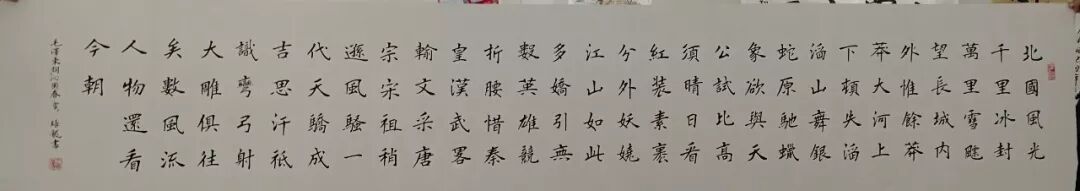 北國風光
千里冰封
萬里雪飄
望長城內
外惟餘莽
莽大河上
下頓失滔
滔山舞銀
蛇原馳蠟
象欲與天
公試比高
須晴日看
紅裝素裹
分外妖嬈
江山如此
多嬌引無
數英雄競
折腰惜秦
皇漢武畧
輸文采唐
宗宋祖稍
遜風騷一
代天驕成
吉思汗祗
識彎弓射
大雕俱往
矣數風流
人物還看
今朝
毛澤東詞沁園春雪 書